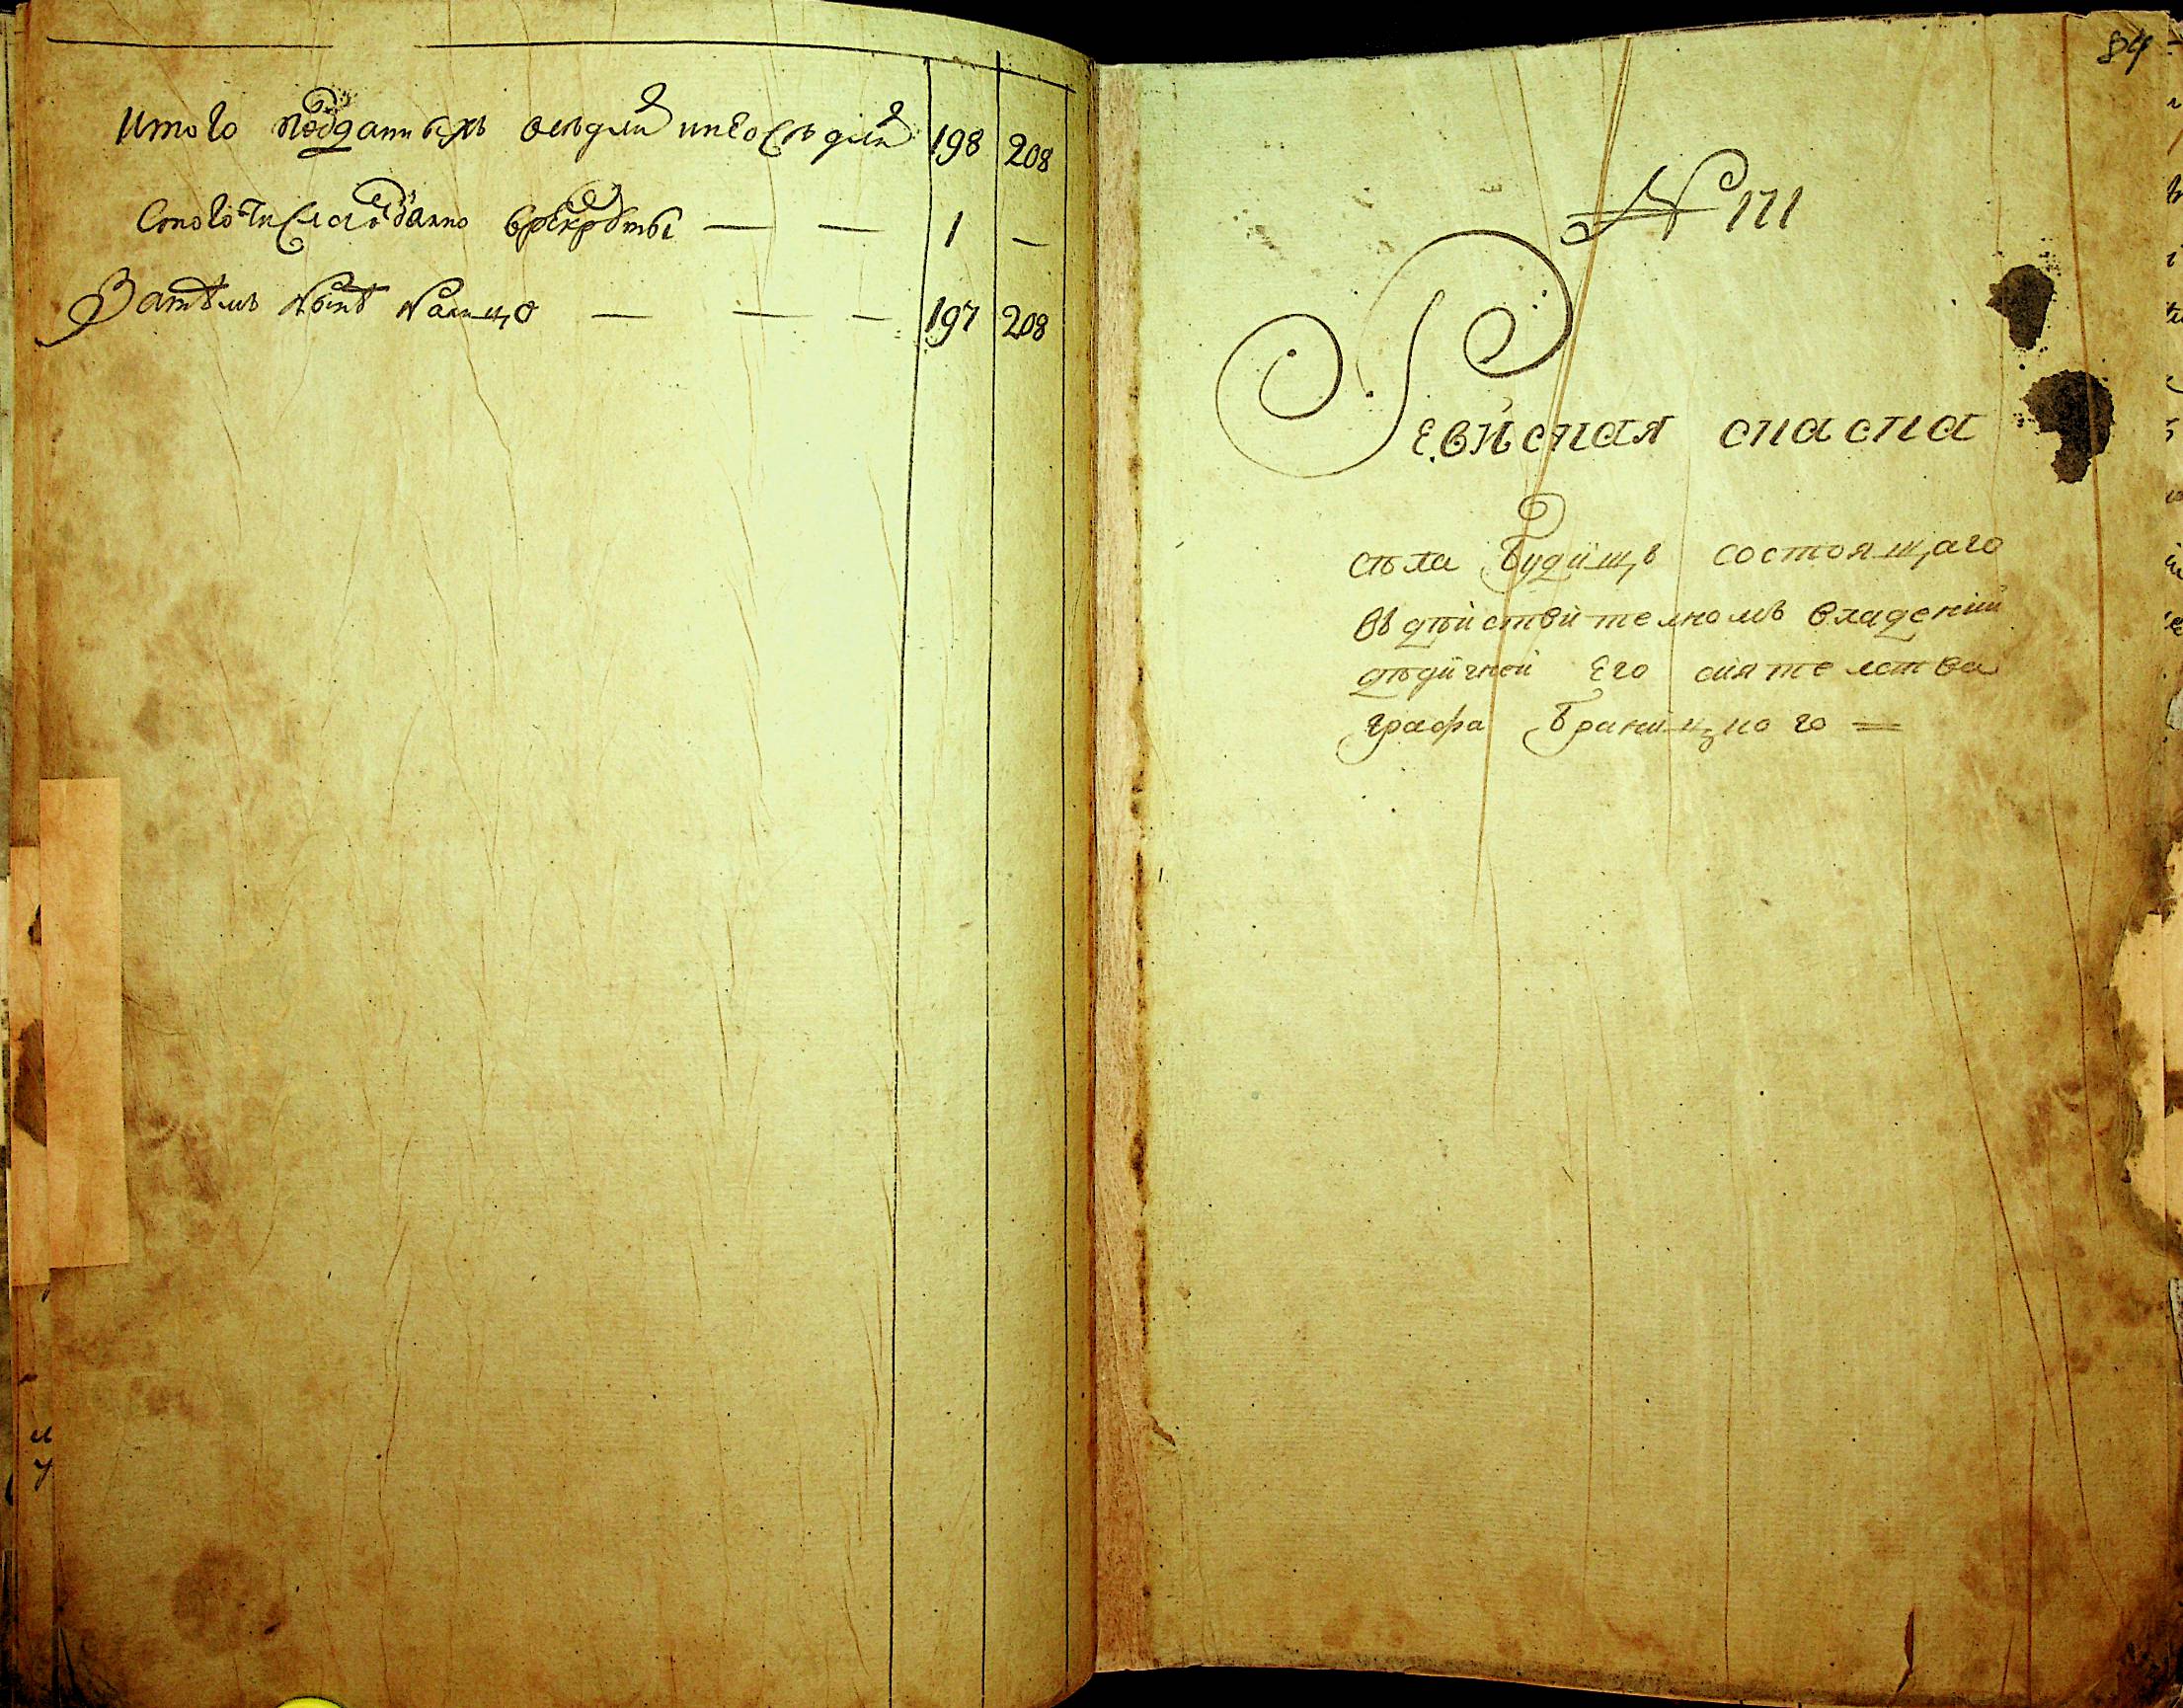 Итого подданныхъ осѣдлй инеосѣдлй 198 208
Стого числа отданно врекруты — — 1 —
Затѣмъ нынѣ налицо — — — 197 208
84
№ 111
Ревиская скаска
сѣла Будищъ состоящаго
въ дѣйствителномъ владеніи
дѣдичной Его сиятелства
графа Браницкого =